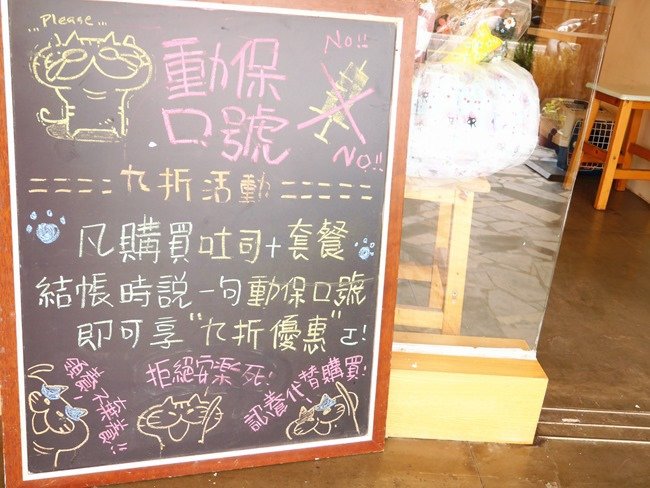 Please...
動保
口號
No!!
No!!
====九折活動=====
凡購買吐司+套餐
結帳時說一句動保口號
即可享"九折優惠"ㄛ!
領養不棄養!!
拒絕安樂死!
認養代替購買!